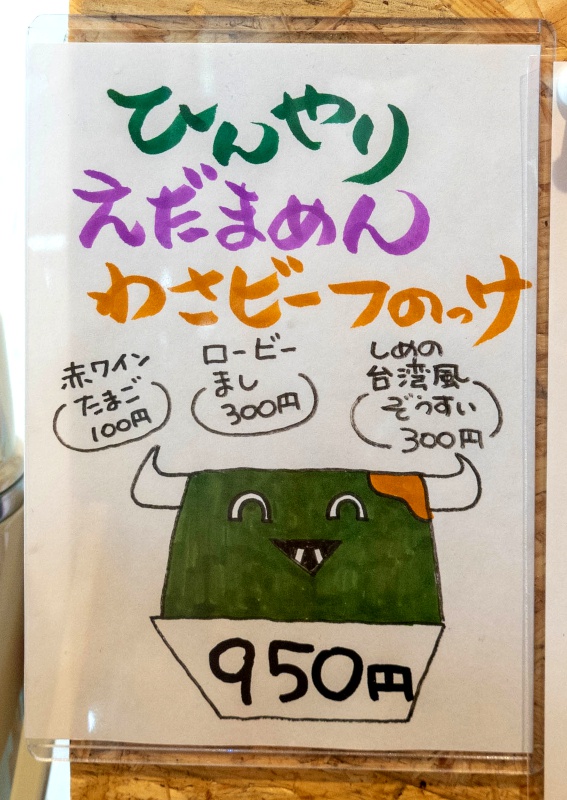 ひんやり
えだまめん
わさビーフのっけ
赤ワイン
たまご
100円
ロービー
まし
300円
しめの
台湾風
ぞうすい
300円
950円